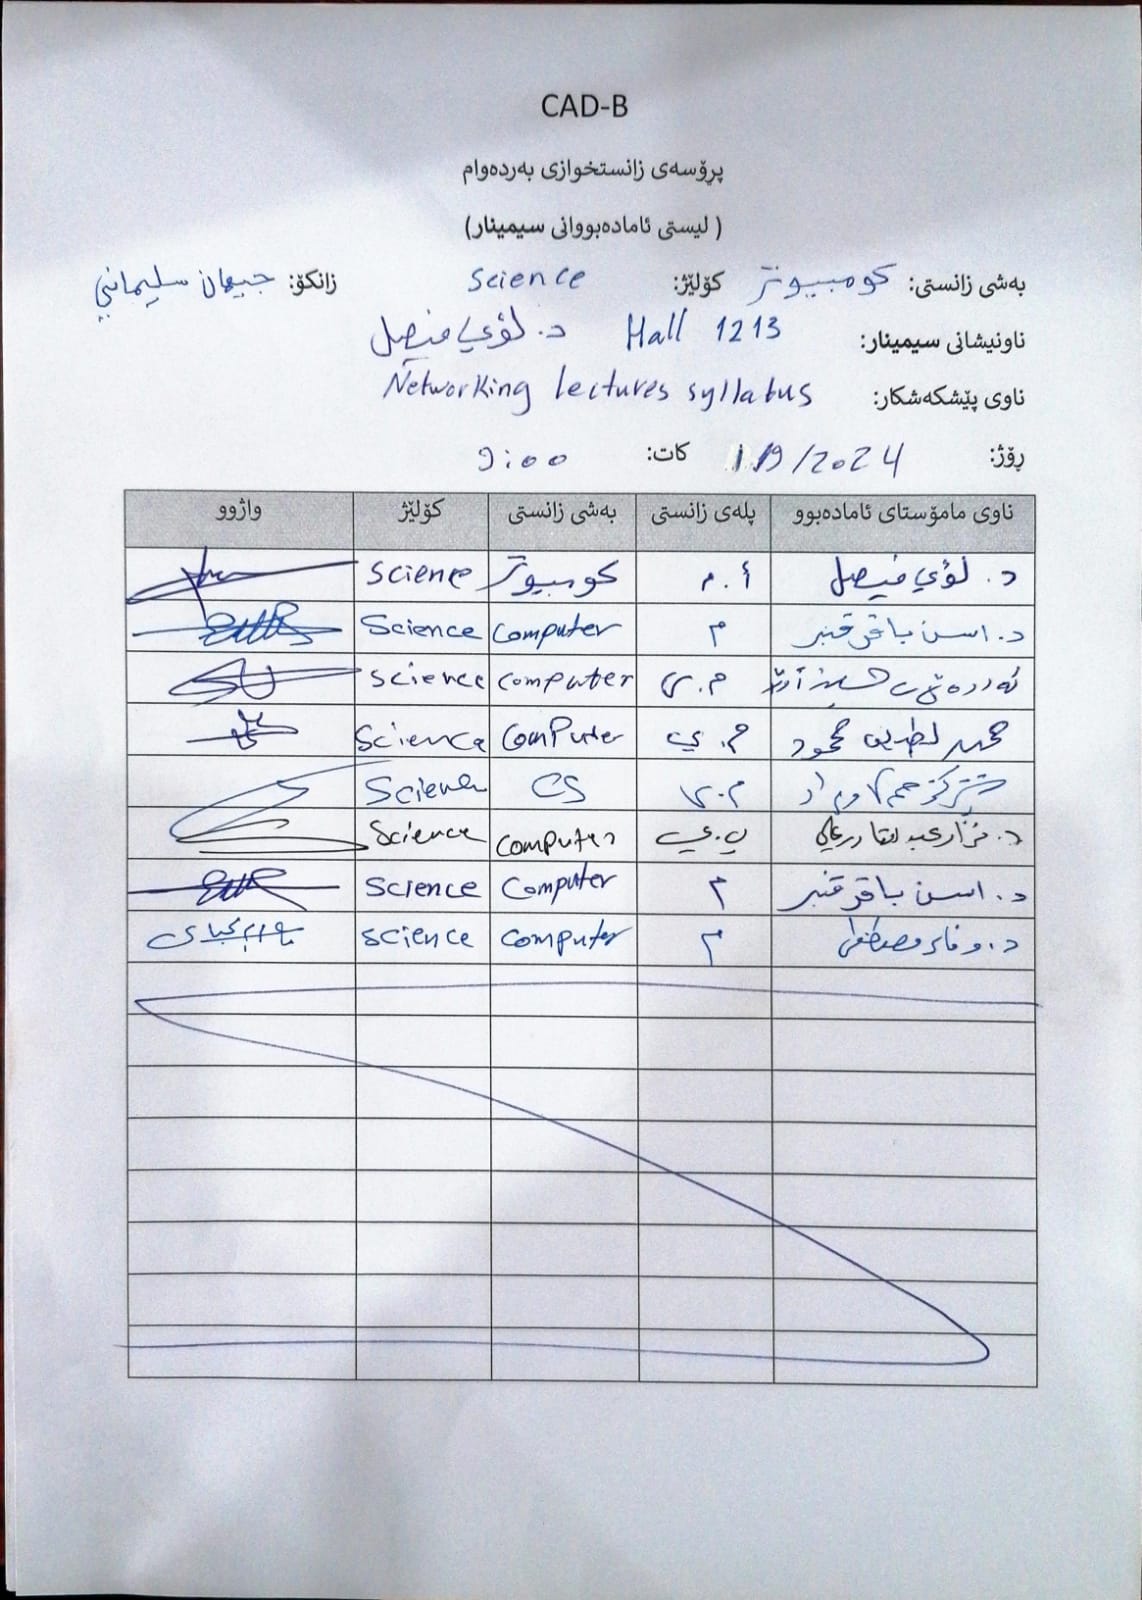 CAD-B
پرۆسەی زانستخوازی بەردەوام
( لیستی ئامادەبووانی سیمینار)
بەشی زانستی: کومبیوتر کۆلێژ: Science زانکۆ: جیهان سلیمانیي
ناونیشانی سیمینار: Hall 1213 د. لؤي فيصل
ناوی پێشکەشکار: Networking lectures syllabus
ڕۆژ: 1/9/2024 کات: 9:00
ناوی مامۆستای ئامادەبوو پلەی زانستی بەشی زانستی کۆلێژ واژوو
د. لؤي فيصل أ.م کومبیوتر Science
د. اسن باقر قنبر م Computer Science
م.ی Computer Science
محمد لطيف محمود م.ي Computer Science
م.ی CS Science
د. نزار عبدالقادر علي پ.ي Computer Science
د. اسن باقر قنبر م Computer Science
د. وفاء مصطفى م Computer Science